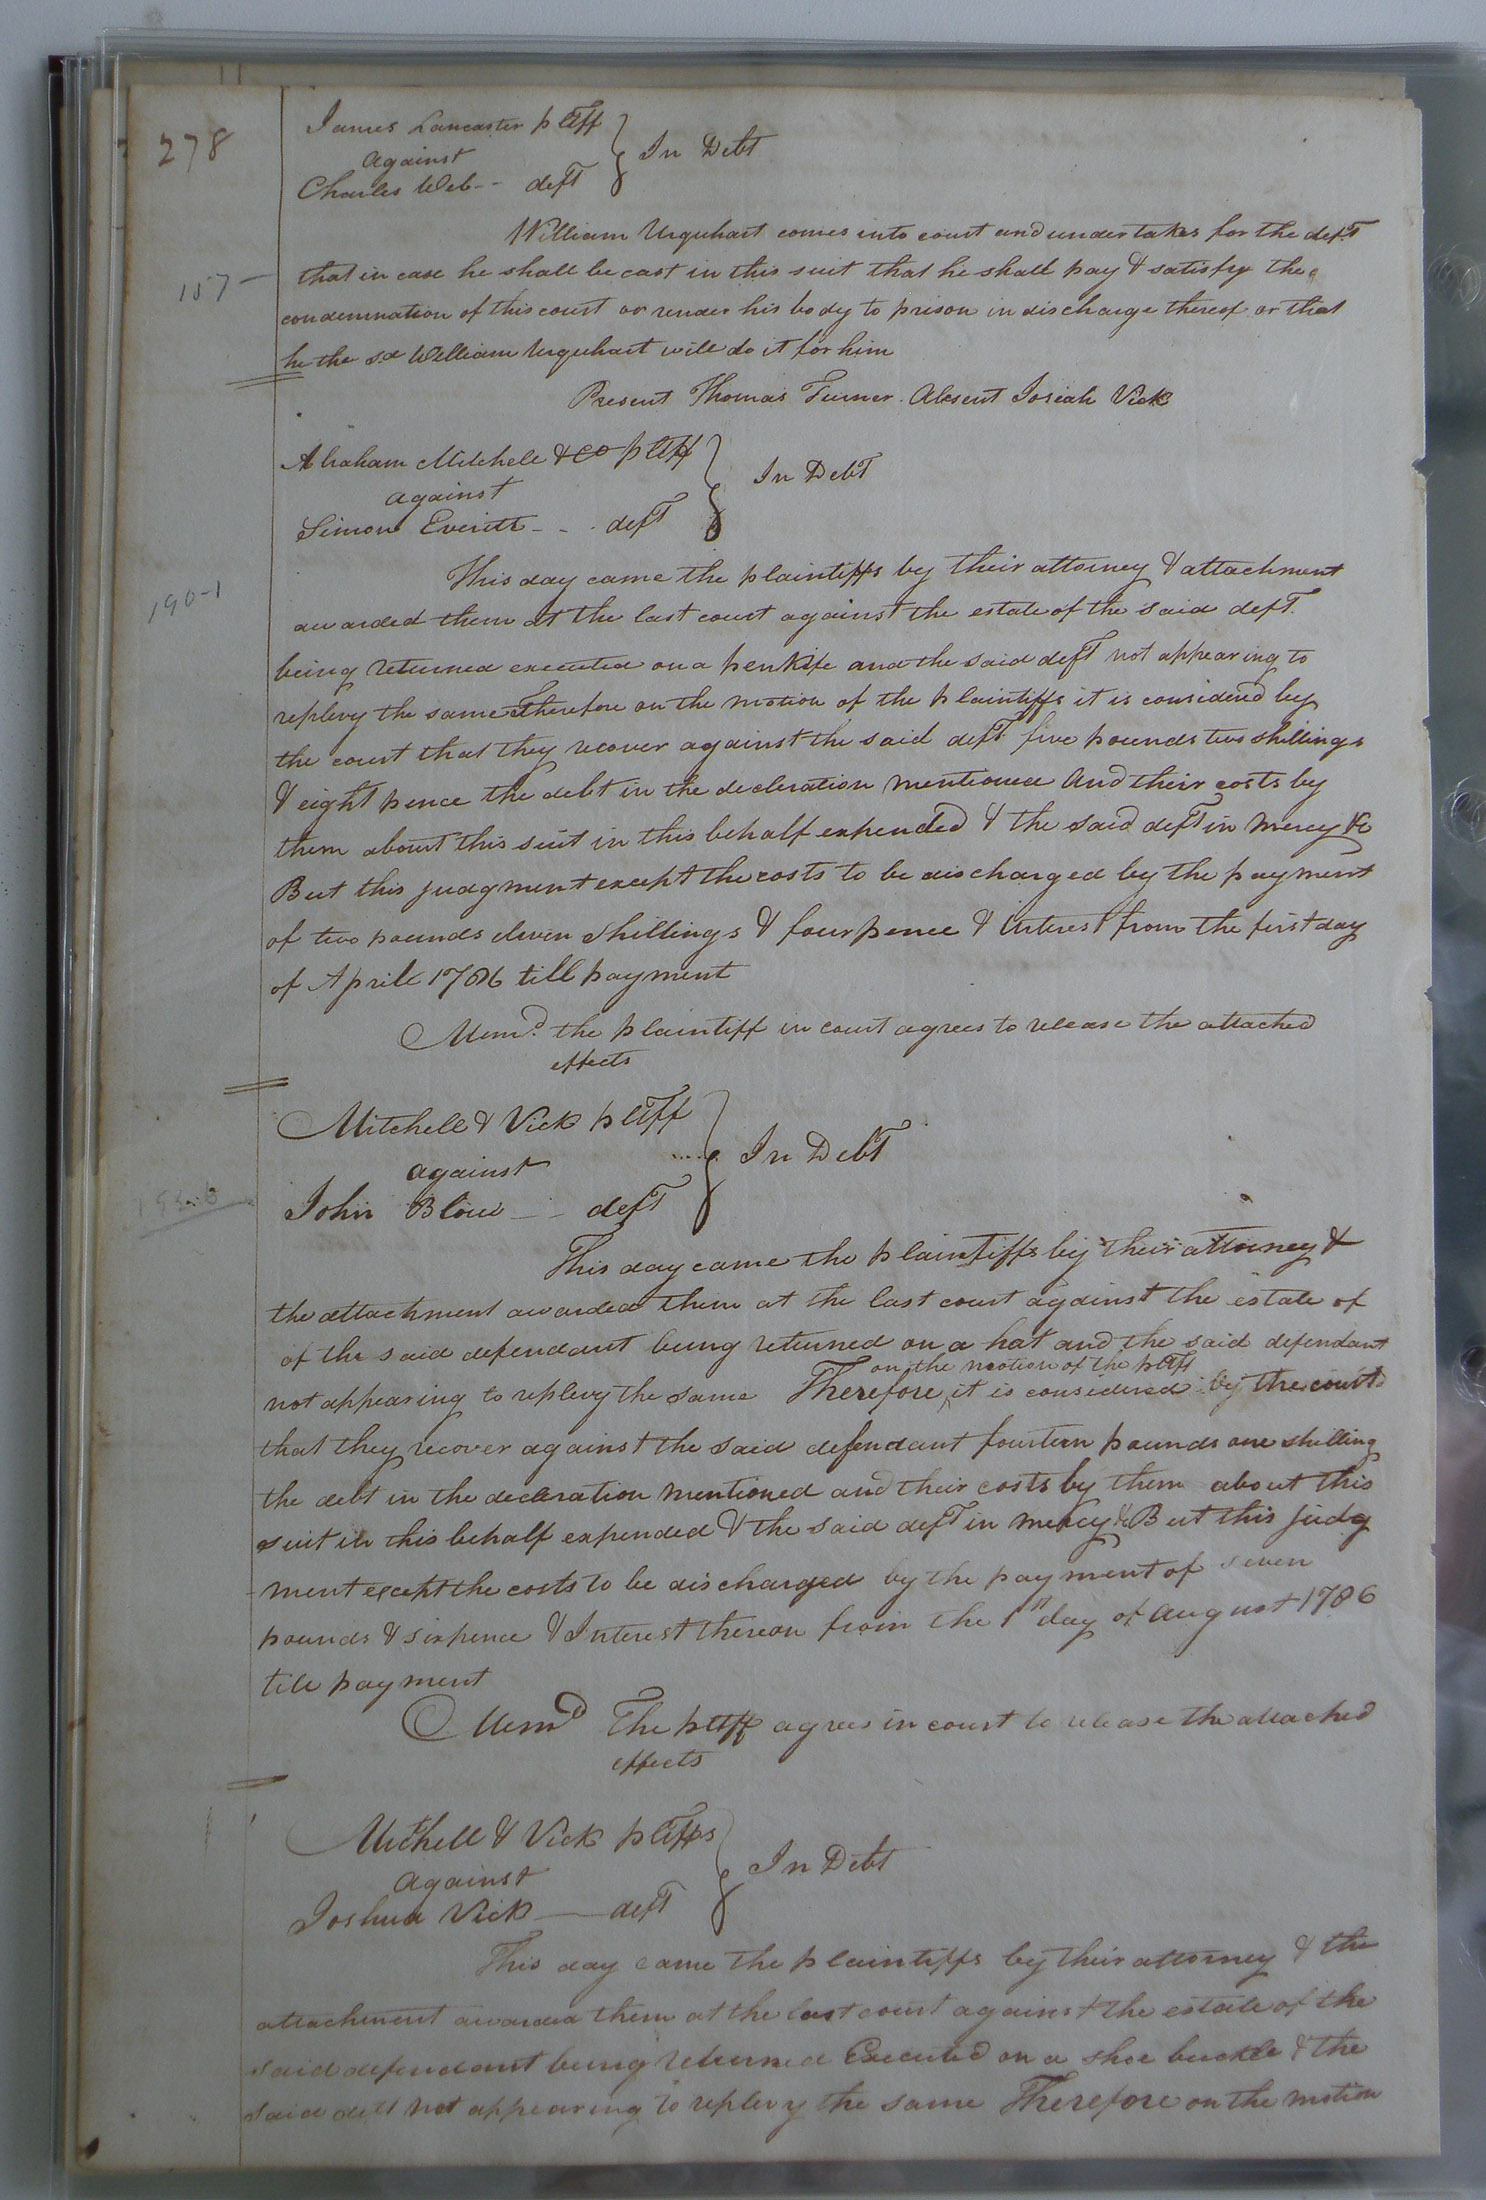 278
James Lancaster pltff
against
Charles Web - - deft
In Debt
William Urquhart comes into court and undertakes for the deft
157 -
that in case he shall be cast in this suit that he shall pay & satisfy the
condemnation of this court or render his body to prison in discharge thereof or that
he the sd William Urquhart will do it for him
Present Thomas Turner. Absent Josiah Vick
Abraham Mitchell & Co pltff
against
Simon Everitt - - - deft
In Debt
This day came the plaintiffs by their attorney & attachment
190-1
awarded them at the last court against the estate of the said deft.
being returned executed on a penkife and the said deft not appearing to
replevy the same Therefore on the motion of the plaintiffs it is considered by
the court that they recover against the said deft five pounds two shillings
& eight pence the debt in the declration mentioned And their costs by
them about this suit in this behalf expended & the said deft in mercy &c
But this judgment except the costs to be discharged by the payment
of two pounds eleven shillings & four pence & Interest from the first day
of April 1786 till payment
Memd. the plaintiff in court agrees to release the attached
effects
Mitchell & Vick pltff
against
John Blow - - deft
In Debt
This day came the plaintiffs by their attorney &
the attachment awarded them at the last court against the estate of
of the said defendant being returned on a hat and the said defendant
on the motion of the pltff
not appearing to replevy the same Therefore ^ it is considered by the court
that they recover against the said defendant fourteen pounds one shilling
the debt in the declration mentioned and their costs by them about this
suit in this behalf expended & the said deft in mercy & But this judg
ment except the costs to be discharged by the payment of seven
pounds & sixpence & Interest thereon from the 1st day of August 1786
till payment
Memd The pltff agrees in court to release the attached
effects
Mitchell & Vick pltffs
against
Joshua Vick — deft
In Debt
This day came the plaintiffs by their attorney & the
attachment awarded them at the last court against the estate of the
said defendant being returned Executed on a shoe buckle & the
said deft not appearing to replevy the same Therefore on the motion